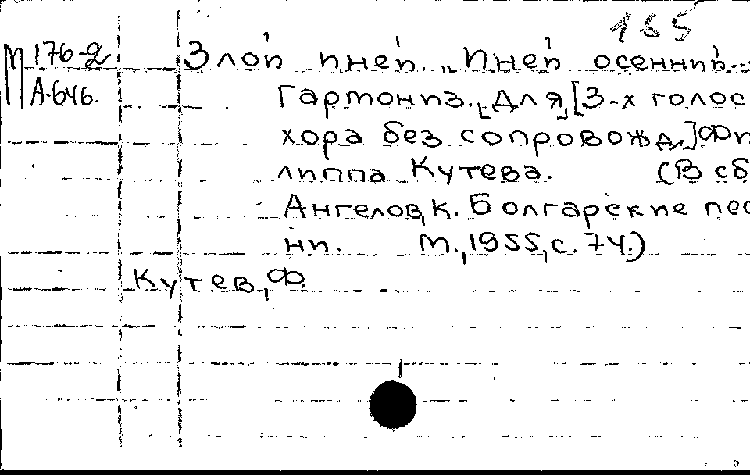 155
М 176-2 Злой иней. „Иней осенний..
А-646. Гармониз. [для] [3-х голос
хора без сопровожд.] Фи
липпа Кутева. (В сб
Ангелов, К. Болгарские пес
ни. М., 1955, с. 74.)
Кутев, Ф.